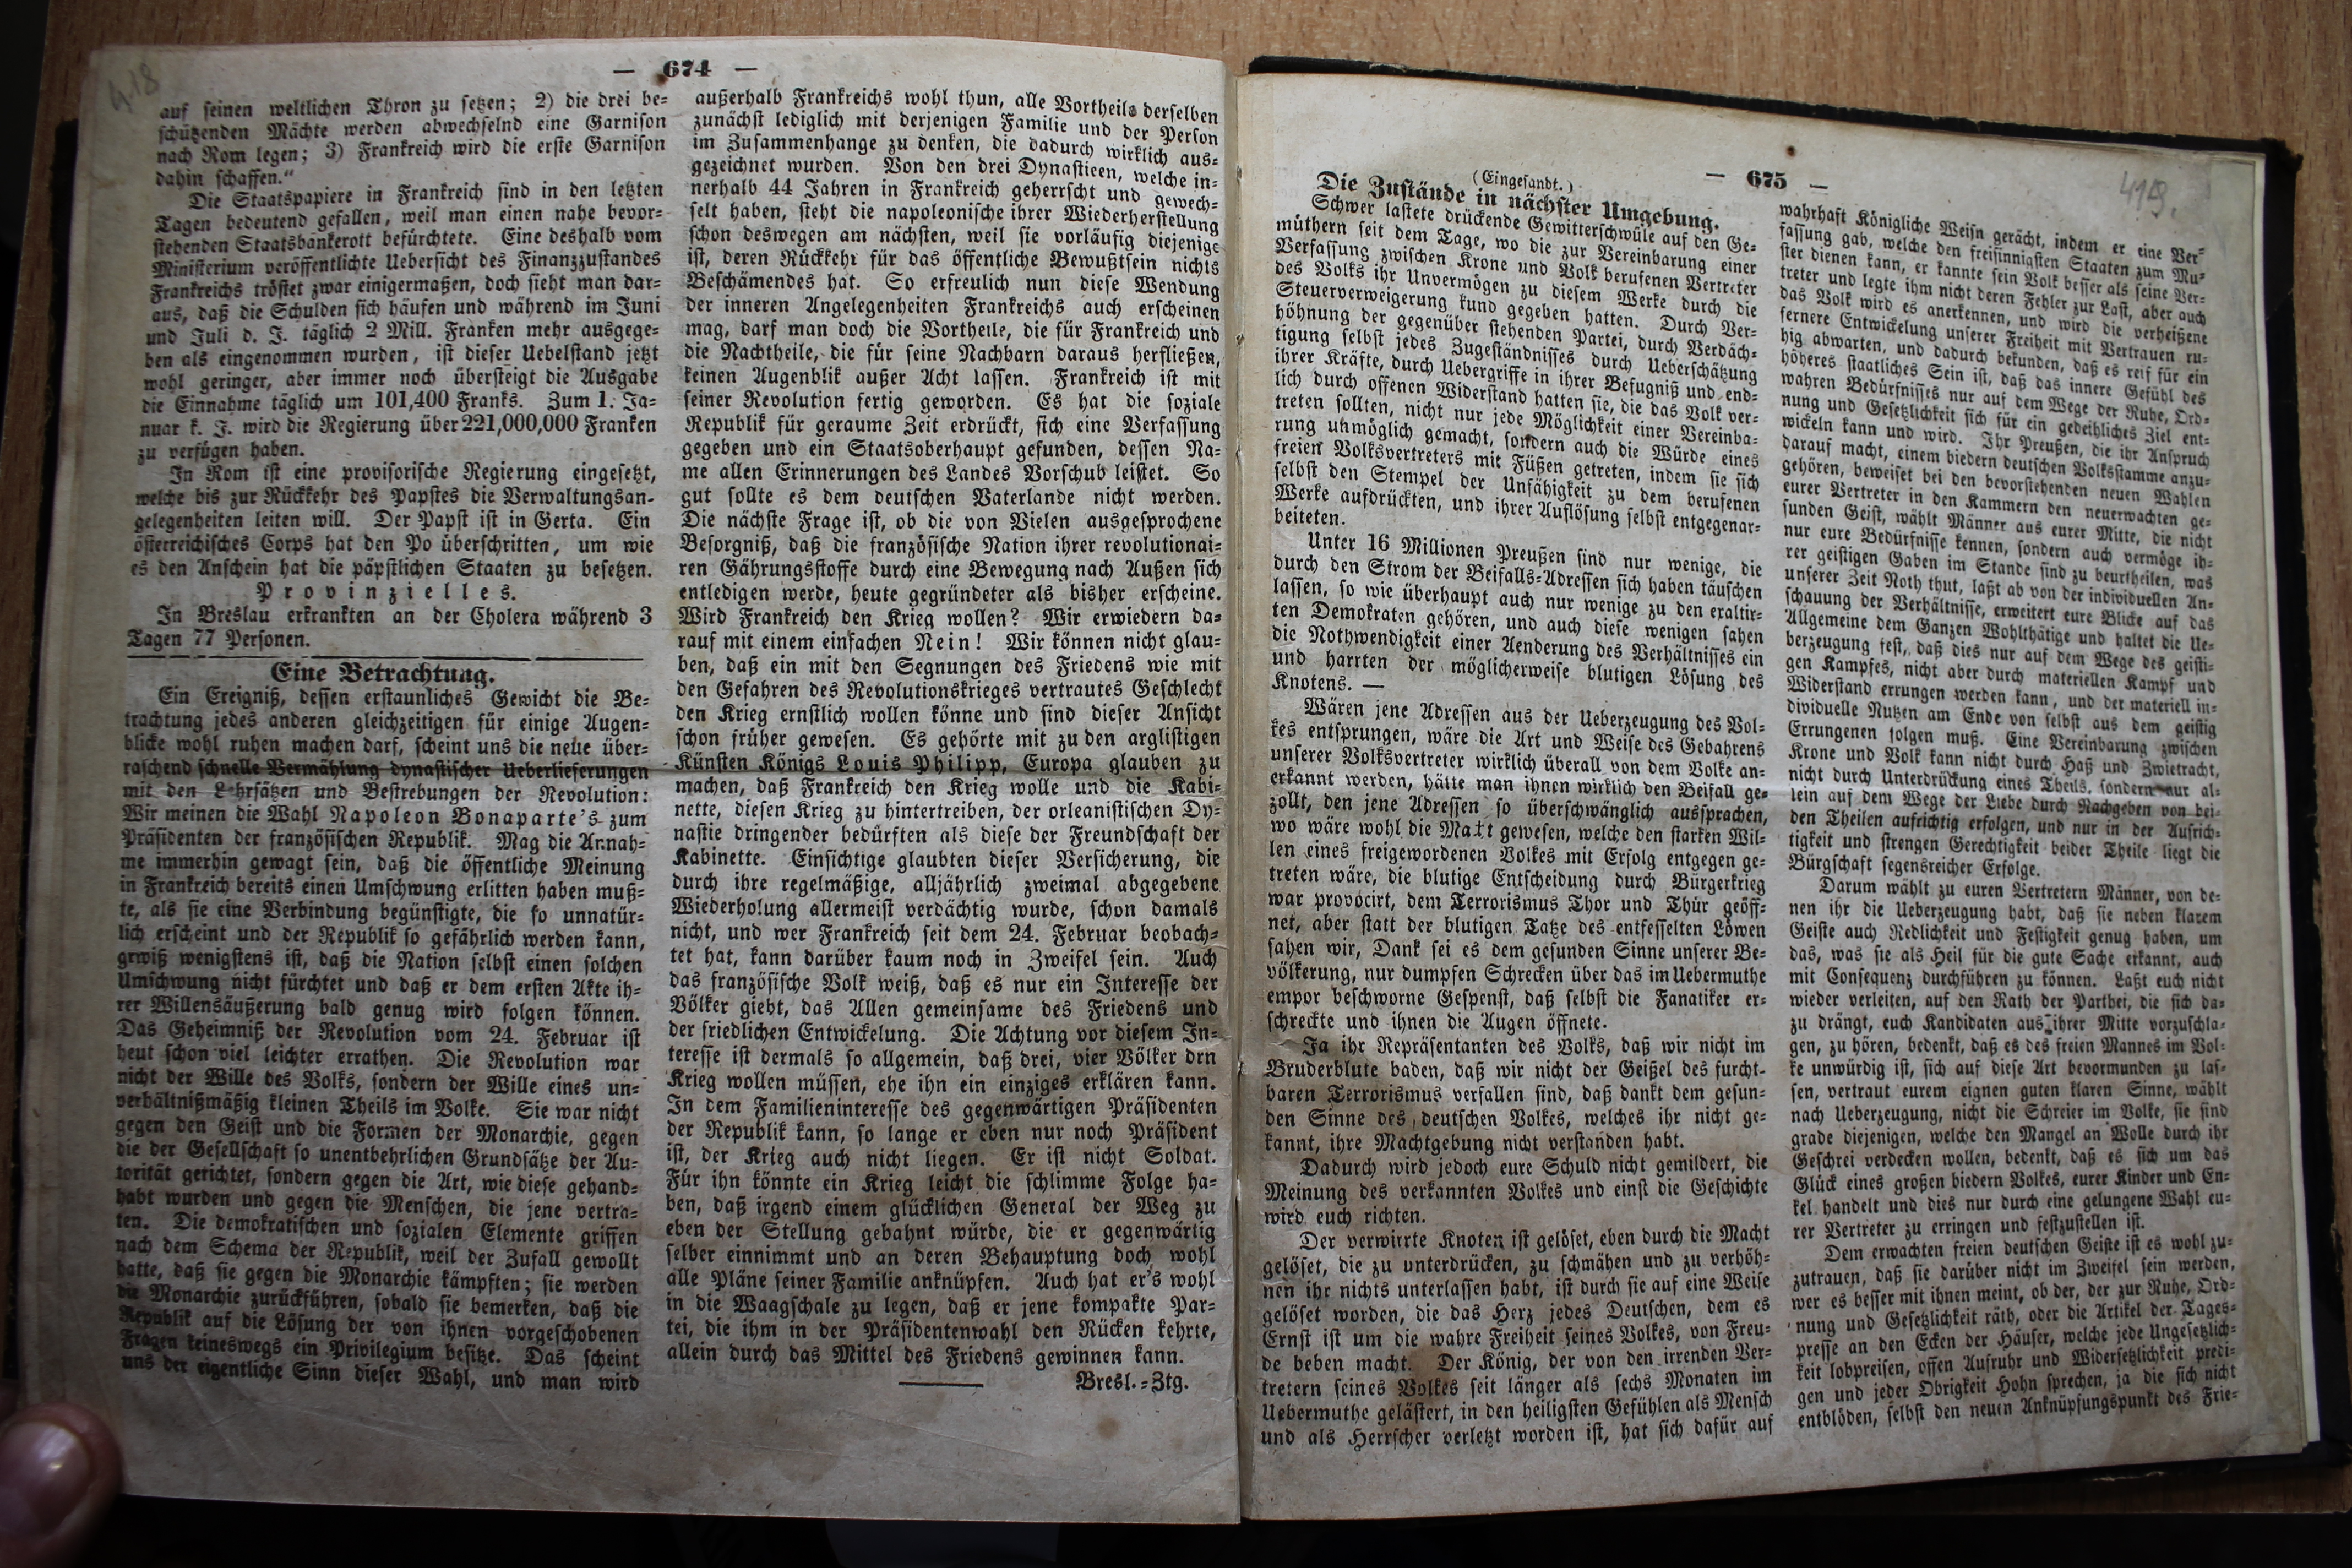 418
— 674 —
auf seinen weltlichen Thron zu setzen; 2) die drei be-
schützenden Mächte werden abwechselnd eine Garnison
nach Rom legen; 3) Frankreich wird die erste Garnison
dahin schaffen."
Die Staatspapiere in Frankreich sind in den letzten
Tagen bedeutend gefallen, weil man einen nahe bevor-
stehenden Staatsbankerott befürchtete. Eine deshalb vom
Ministerium veröffentlichte Uebersicht des Finanzzustandes
Frankreichs tröstet zwar einigermaßen, doch sieht man dar-
aus, daß die Schulden sich häufen und während im Juni
und Juli d. J. täglich 2 Mill. Franken mehr ausgege-
ben als eingenommen wurden, ist dieser Uebelstand jetzt
wohl geringer, aber immer noch übersteigt die Ausgabe
die Einnahme täglich um 101,400 Franks. Zum 1. Ja-
nuar k. J. wird die Regierung über 221,000,000 Franken
zu verfügen haben.
In Rom ist eine provisorische Regierung eingesetzt,
welche bis zur Rückkehr des Papstes die Verwaltungsan-
gelegenheiten leiten will. Der Papst ist in Gerta. Ein
österreichisches Corps hat den Po überschritten, um wie
es den Anschein hat die päpstlichen Staaten zu besetzen.
Provinzielles.
In Breslau erkrankten an der Cholera während 3
Tagen 77 Personen.
Eine Betrachtung.
Ein Ereigniß, dessen erstaunliches Gewicht die Be-
trachtung jedes anderen gleichzeitigen für einige Augen-
blicke wohl ruhen machen darf, scheint uns die neue über-
raschend schnelle Vermählung dynastischer Ueberlieferungen
mit den Lehrsätzen und Bestrebungen der Revolution:
Wir meinen die Wahl Napoleon Bonaparte's zum
Präsidenten der französischen Republik. Mag die Annah-
me immerhin gewagt sein, daß die öffentliche Meinung
in Frankreich bereits einen Umschwung erlitten haben muß-
te, als sie eine Verbindung begünstigte, die so unnatür-
lich erscheint und der Republik so gefährlich werden kann,
gewiß wenigstens ist, daß die Nation selbst einen solchen
Umschwung nicht fürchtet und daß er dem ersten Akte ih-
rer Willensäußerung bald genug wird folgen können.
Das Geheimniß der Revolution vom 24. Februar ist
heut schon viel leichter errathen. Die Revolution war
nicht der Wille des Volks, sondern der Wille eines un-
verhältnißmäßig kleinen Theils im Volke. Sie war nicht
gegen den Geist und die Formen der Monarchie, gegen
die der Gesellschaft so unentbehrlichen Grundsätze der Au-
torität gerichtet, sondern gegen die Art, wie diese gehand-
habt wurden und gegen die Menschen, die jene vertra-
ten. Die demokratischen und sozialen Elemente griffen
nach dem Schema der Republik, weil der Zufall gewollt
hatte, daß sie gegen die Monarchie kämpften; sie werden
die Monarchie zurückführen, sobald sie bemerken, daß die
Republik auf die Lösung der von ihnen vorgeschobenen
Fragen keineswegs ein Privilegium besitze. Das scheint
uns der eigentliche Sinn dieser Wahl, und man wird
außerhalb Frankreichs wohl thun, alle Vortheile derselben
zunächst lediglich mit derjenigen Familie und der Person
im Zusammenhange zu denken, die dadurch wirklich aus-
gezeichnet wurden. Von den drei Dynastieen, welche in-
nerhalb 44 Jahren in Frankreich geherrscht und gewech-
selt haben, steht die napoleonische ihrer Wiederherstellung
schon deswegen am nächsten, weil sie vorläufig diejenige
ist, deren Rückkehr für das öffentliche Bewußtsein nichts
Beschämendes hat. So erfreulich nun diese Wendung
der inneren Angelegenheiten Frankreichs auch erscheinen
mag, darf man doch die Vortheile, die für Frankreich und
die Nachtheile, die für seine Nachbarn daraus herfließen,
keinen Augenblik außer Acht lassen. Frankreich ist mit
seiner Revolution fertig geworden. Es hat die soziale
Republik für geraume Zeit erdrückt, sich eine Verfassung
gegeben und ein Staatsoberhaupt gefunden, dessen Na-
me allen Erinnerungen des Landes Vorschub leistet. So
gut sollte es dem deutschen Vaterlande nicht werden.
Die nächste Frage ist, ob die von Vielen ausgesprochene
Besorgniß, daß die französische Nation ihrer revolutionai-
ren Gährungsstoffe durch eine Bewegung nach Außen sich
entledigen werde, heute gegründeter als bisher erscheine.
Wird Frankreich den Krieg wollen? Wir erwiedern da-
rauf mit einem einfachen Nein! Wir können nicht glau-
ben, daß ein mit den Segnungen des Friedens wie mit
den Gefahren des Revolutionskrieges vertrautes Geschlecht
den Krieg ernstlich wollen könne und sind dieser Ansicht
schon früher gewesen. Es gehörte mit zu den arglistigen
Künsten Königs Louis Philipp, Europa glauben zu
machen, daß Frankreich den Krieg wolle und die Kabi-
nette, diesen Krieg zu hintertreiben, der orleanistischen Dy-
nastie dringender bedürften als diese der Freundschaft der
Kabinette. Einsichtige glaubten dieser Versicherung, die
durch ihre regelmäßige, alljährlich zweimal abgegebene
Wiederholung allermeist verdächtig wurde, schon damals
nicht, und wer Frankreich seit dem 24. Februar beobach-
tet hat, kann darüber kaum noch in Zweifel sein. Auch
das französische Volk weiß, daß es nur ein Interesse der
Völker giebt, das Allen gemeinsame des Friedens und
der friedlichen Entwickelung. Die Achtung vor diesem In-
teresse ist dermals so allgemein, daß drei, vier Völker den
Krieg wollen müssen, ehe ihn ein einziges erklären kann.
In dem Familieninteresse des gegenwärtigen Präsidenten
der Republik kann, so lange er eben nur noch Präsident
ist, der Krieg auch nicht liegen. Er ist nicht Soldat.
Für ihn könnte ein Krieg leicht die schlimme Folge ha-
ben, daß irgend einem glücklichen General der Weg zu
eben der Stellung gebahnt würde, die er gegenwärtig
selber einnimmt und an deren Behauptung doch wohl
alle Pläne seiner Familie anknüpfen. Auch hat er's wohl
in die Waagschale zu legen, daß er jene kompakte Par-
tei, die ihm in der Präsidentenwahl den Rücken kehrte,
allein durch das Mittel des Friedens gewinnen kann.
Bresl.-Ztg.
— 675 —
419.
(Eingesandt.)
Die Zustände in nächster Umgebung.
Schwer lastete drückende Gewitterschwüle auf den Ge-
müthern seit dem Tage, wo die zur Vereinbarung einer
Verfassung zwischen Krone und Volk berufenen Vertreter
des Volks ihr Unvermögen zu diesem Werke durch die
Steuerverweigerung kund gegeben hatten. Durch Ver-
höhnung der gegenüber stehenden Partei, durch Verdäch-
tigung selbst jedes Zugeständnisses durch Ueberschätzung
ihrer Kräfte, durch Uebergriffe in ihrer Befugniß und end-
lich durch offenen Widerstand hatten sie, die das Volk ver-
treten sollten, nicht nur jede Möglichkeit einer Vereinba-
rung unmöglich gemacht, sondern auch die Würde eines
freien Volksvertreters mit Füßen getreten, indem sie sich
selbst den Stempel der Unfähigkeit zu dem berufenen
Werke aufdrückten, und ihrer Auflösung selbst entgegenar-
beiteten.
Unter 16 Millionen Preußen sind nur wenige, die
durch den Strom der Beifalls-Adressen sich haben täuschen
lassen, so wie überhaupt auch nur wenige zu den exaltir-
ten Demokraten gehören, und auch diese wenigen sahen
die Nothwendigkeit einer Aenderung des Verhältnisses ein
und harrten der möglicherweise blutigen Lösung des
Knotens. —
Wären jene Adressen aus der Ueberzeugung des Vol-
kes entsprungen, wäre die Art und Weise des Gebahrens
unserer Volksvertreter wirklich überall von dem Volke an-
erkannt werden, hätte man ihnen wirklich den Beifall ge-
zollt, den jene Adressen so überschwänglich aussprachen,
wo wäre wohl die Macht gewesen, welche den starken Wil-
len eines freigewordenen Volkes mit Erfolg entgegen ge-
treten wäre, die blutige Entscheidung durch Bürgerkrieg
war provocirt, dem Terrorismus Thor und Thür geöff-
net, aber statt der blutigen Tatze des entfesselten Löwen
sahen wir, Dank sei es dem gesunden Sinne unserer Be-
völkerung, nur dumpfen Schrecken über das im Uebermuthe
empor beschworne Gespenst, daß selbst die Fanatiker er-
schreckte und ihnen die Augen öffnete.
Ja ihr Repräsentanten des Volks, daß wir nicht im
Bruderblute baden, daß wir nicht der Geißel des furcht-
baren Terrorismus verfallen sind, daß dankt dem gesun-
den Sinne des deutschen Volkes, welches ihr nicht ge-
kannt, ihre Machtgebung nicht verstanden habt.
Dadurch wird jedoch eure Schuld nicht gemildert, die
Meinung des verkannten Volkes und einst die Geschichte
wird euch richten.
Der verwirrte Knoten ist gelöset, eben durch die Macht
gelöset, die zu unterdrücken, zu schmähen und zu verhöh-
nen ihr nichts unterlassen habt, ist durch sie auf eine Weise
gelöset worden, die das Herz jedes Deutschen, dem es
Ernst ist um die wahre Freiheit seines Volkes, von Freu-
de beben macht. Der König, der von den irrenden Ver-
tretern seines Volkes seit länger als sechs Monaten im
Uebermuthe gelästert, in den heiligsten Gefühlen als Mensch
und als Herrscher verletzt worden ist, hat sich dafür auf
wahrhaft Königliche Weise gerächt, indem er eine Ver-
fassung gab, welche den freisinnigsten Staaten zum Mu-
ster dienen kann, er kannte sein Volk besser als seine Ver-
treter und legte ihm nicht deren Fehler zur Last, aber auch
das Volk wird es anerkennen, und wird die verheißene
fernere Entwickelung unserer Freiheit mit Vertrauen ru-
hig abwarten, und dadurch bekunden, daß es reif für ein
höheres staatliches Sein ist, daß das innere Gefühl des
wahren Bedürfnisses nur auf dem Wege der Ruhe, Ord-
nung und Gesetzlichkeit sich für ein gedeihliches Ziel ent-
wickeln kann und wird. Ihr Preußen, die ihr Anspruch
darauf macht, einem biedern deutschen Volksstamme anzu-
gehören, beweiset bei den bevorstehenden neuen Wahlen
eurer Vertreter in den Kammern den neuerwachten ge-
sunden Geist, wählt Männer aus eurer Mitte, die nicht
nur eure Bedürfnisse kennen, sondern auch vermöge ih-
rer geistigen Gaben im Stande sind zu beurtheilen, was
unserer Zeit Noth thut, laßt ab von der individuellen An-
schauung der Verhältnisse, erweitert eure Blicke auf das
Allgemeine dem Ganzen Wohlthätige und haltet die Ue-
berzeugung fest, daß dies nur auf dem Wege des geisti-
gen Kampfes, nicht aber durch materiellen Kampf und
Widerstand errungen werden kann, und der materiell in-
dividuelle Nutzen am Ende von selbst aus dem geistig
Errungenen folgen muß. Eine Vereinbarung zwischen
Krone und Volk kann nicht durch Haß und Zwietracht,
nicht durch Unterdrückung eines Theils, sondern nur al-
lein auf dem Wege der Liebe durch Nachgeben von bei-
den Theilen aufrichtig erfolgen, und nur in der Aufrich-
tigkeit und strengen Gerechtigkeit beider Theile liegt die
Bürgschaft segensreicher Erfolge.
Darum wählt zu euren Vertretern Männer, von de-
nen ihr die Ueberzeugung habt, daß sie neben klarem
Geiste auch Redlichkeit und Festigkeit genug haben, um
das, was sie als Heil für die gute Sache erkannt, auch
mit Consequenz durchführen zu können. Laßt euch nicht
wieder verleiten, auf den Rath der Parthei, die sich da-
zu drängt, euch Kandidaten aus ihrer Mitte vorzuschla-
gen, zu hören, bedenkt, daß es des freien Mannes im Vol-
ke unwürdig ist, sich auf diese Art bevormunden zu las-
sen, vertraut eurem eignen guten klaren Sinne, wählt
nach Ueberzeugung, nicht die Schreier im Volke, sie sind
grade diejenigen, welche den Mangel an Wolle durch ihr
Geschrei verdecken wollen, bedenkt, daß es sich um das
Glück eines großen biedern Volkes, eurer Kinder und En-
kel handelt und dies nur durch eine gelungene Wahl eu-
rer Vertreter zu erringen und festzustellen ist.
Dem erwachten freien deutschen Geiste ist es wohl zu-
zutrauen, daß sie darüber nicht im Zweifel sein werden,
wer es besser mit ihnen meint, ob der, der zur Ruhe, Ord-
nung und Gesetzlichkeit räth, oder die Artikel der Tages-
presse an den Ecken der Häuser, welche jede Ungesetzlich-
keit lobpreisen, offen Aufruhr und Widersetzlichkeit predi-
gen und jeder Obrigkeit Hohn sprechen, ja die sich nicht
entblöden, selbst den neuen Anknüpfungspunkt des Frie-